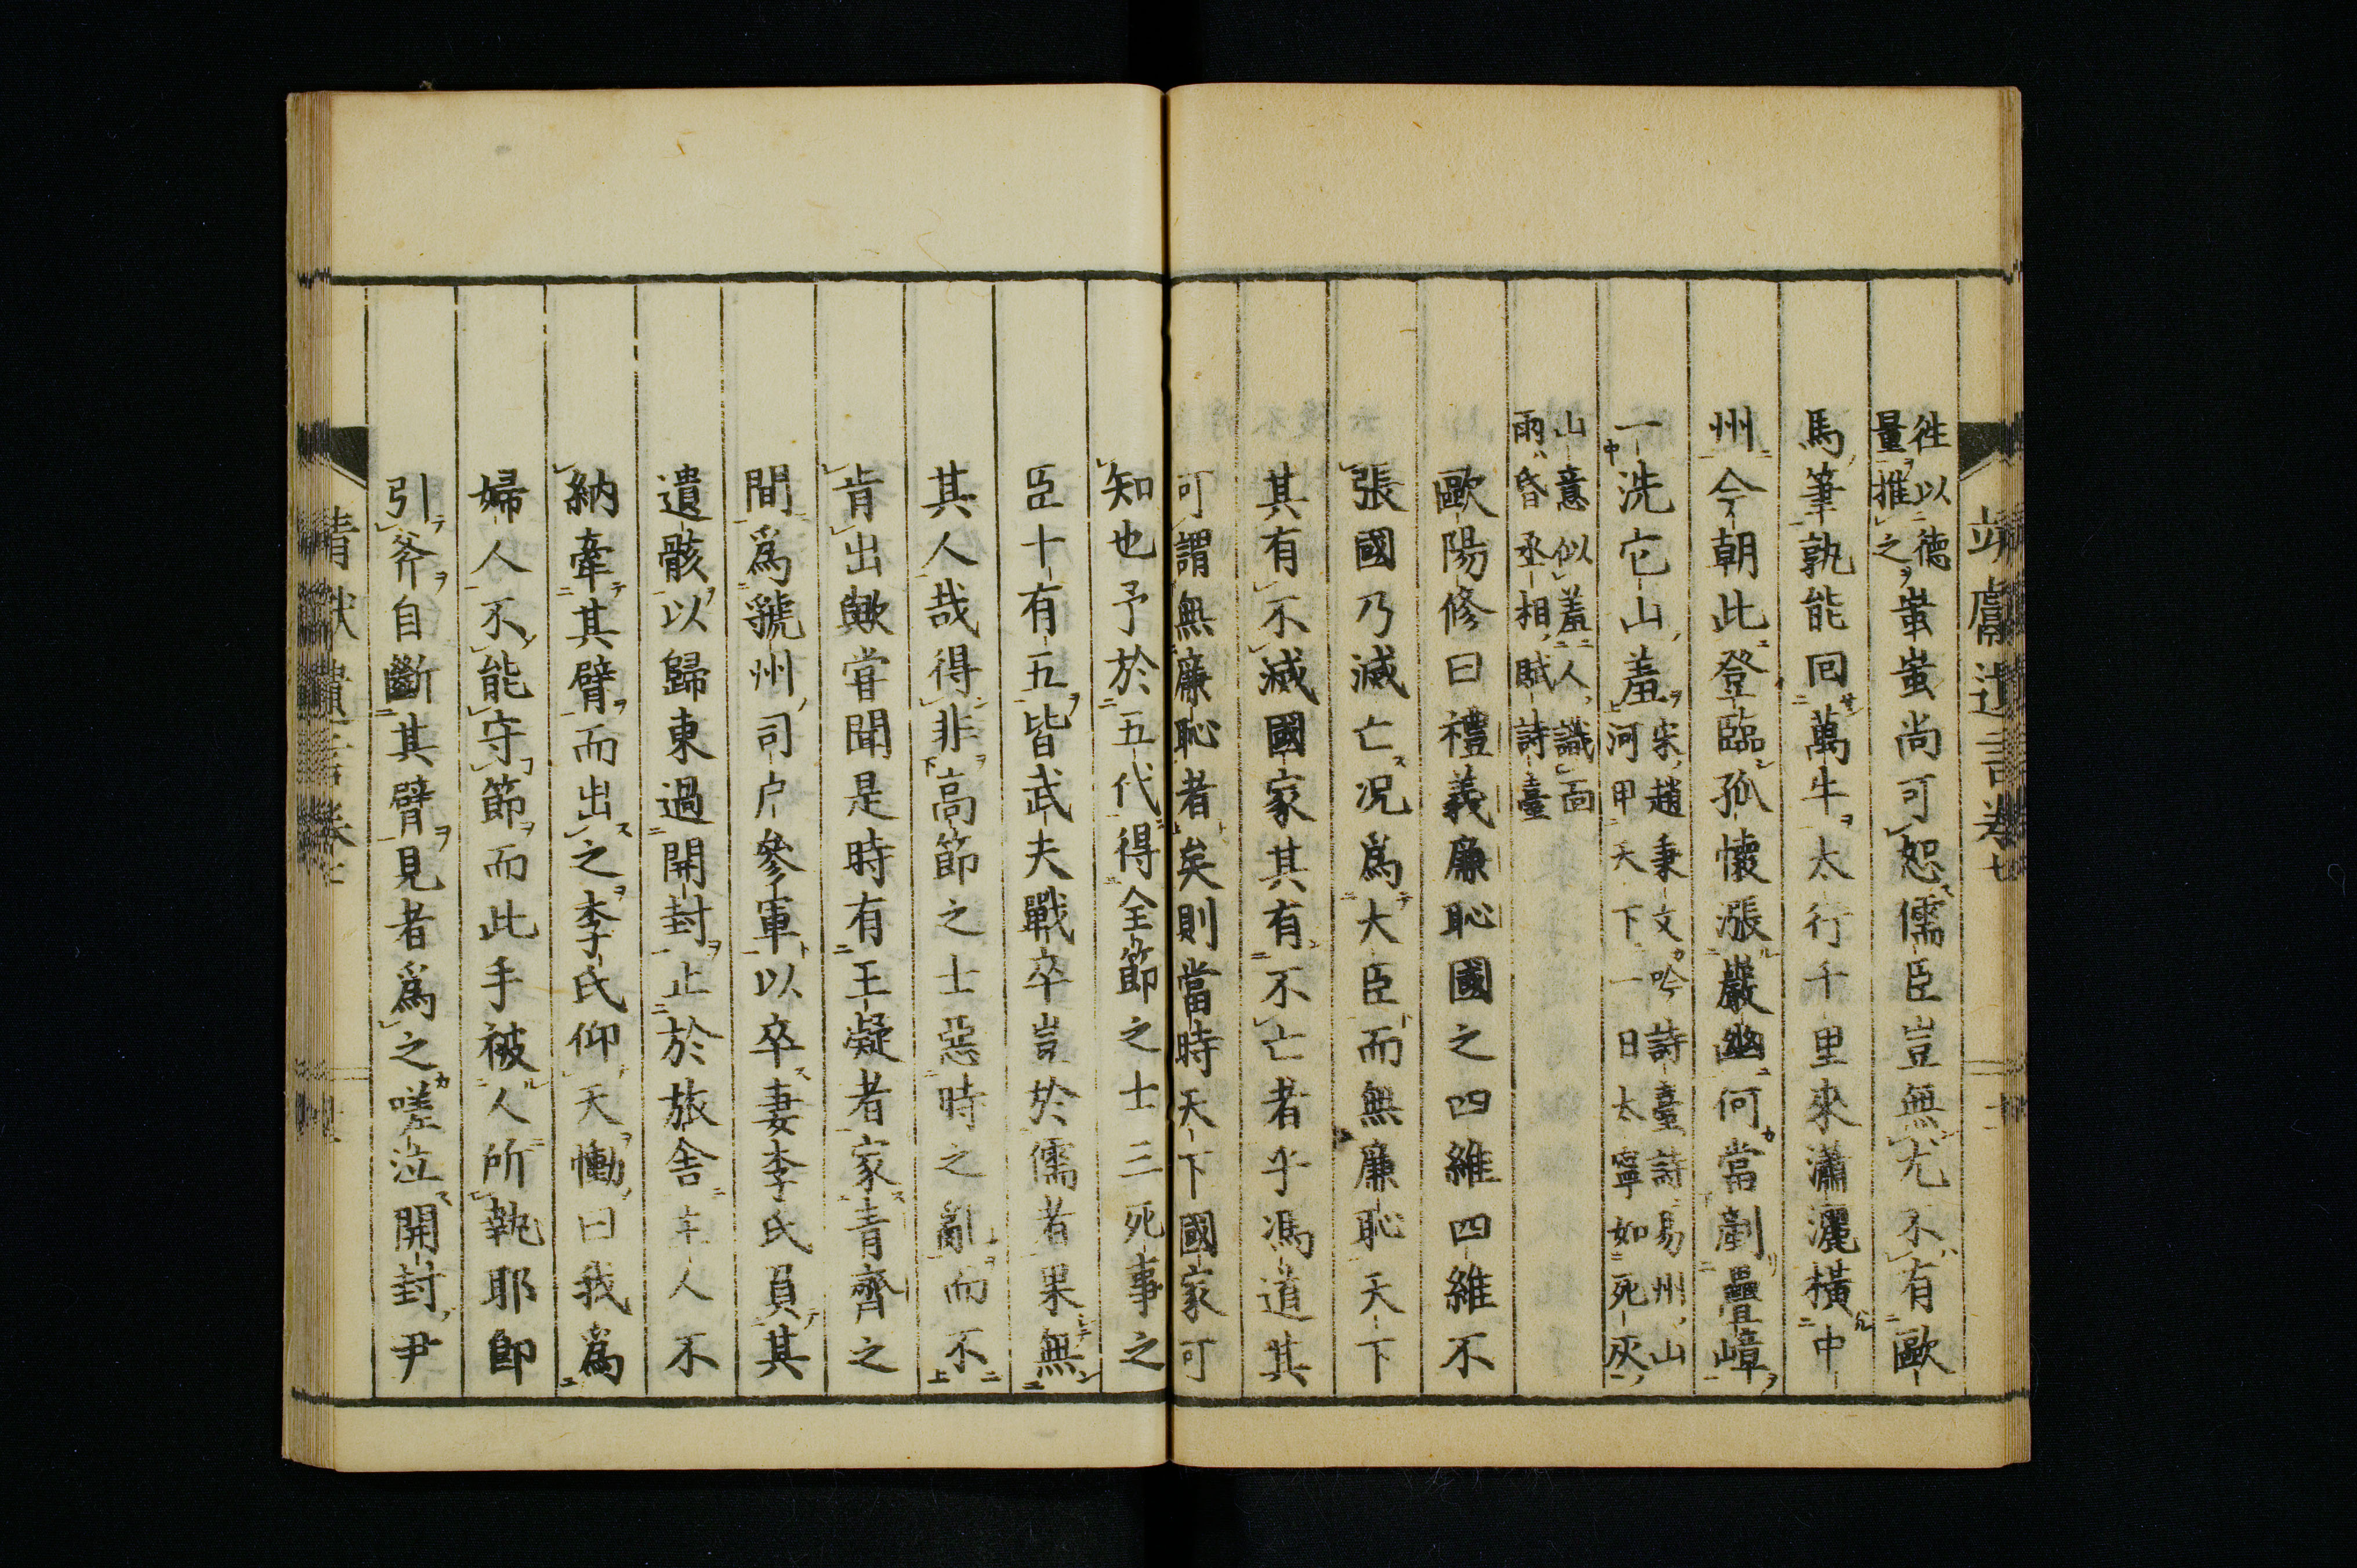 靖獻遺言卷七
往以德
量推之
蚩蚩尚可恕儒臣豈無尤不有歐
馬筆孰能回萬牛太行千里來瀟灑橫中
州今朝此登臨孤懷漲巖幽何當剷疊嶂
一洗它山羞
宋趙秉文吟詩臺詩易州山
河甲天下一日太寧如死灰
山意似羞人識面
雨昏丞相賦詩臺
歐陽修曰禮義廉恥國之四維四維不
張國乃滅亡況爲大臣而無廉恥天下
其有不滅國家其有不亡者乎馮道其
可謂無廉恥者矣則當時天下國家可
知也予於五代得全節之士三死事之
臣十有五皆武夫戰卒豈於儒者果無
其人哉得非高節之士惡時之亂而不
肯出歟嘗聞是時有王凝者家青齊之
間爲虢州司戶參軍以卒妻李氏負其
遺骸以歸東過開封止於旅舍主人不
納牽其臂而出之李氏仰天慟曰我爲
婦人不能守節而此手被人所執耶卽
引斧自斷其臂見者爲之嗟泣開封尹